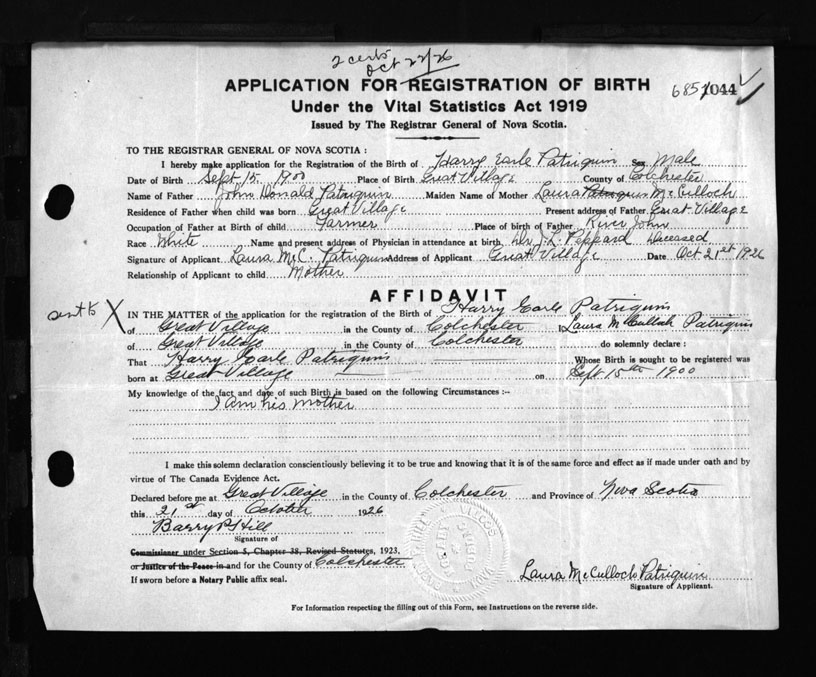 2 certs
Oct 22/26
APPLICATION FOR REGISTRATION OF BIRTH
6851 1044
Under the Vital Statistics Act 1919
Issued by The Registrar General of Nova Scotia.
TO THE REGISTRAR GENERAL OF NOVA SCOTIA :
I hereby make application for the Registration of the Birth of Harry Earle Patriquin Sex Male
Date of Birth Sept 15. 1900 Place of Birth Great Village County of Colchester
Name of Father John Donald Patriquin Maiden Name of Mother Laura Patriquin McCulloch
Residence of Father when child was born Great Village Present address of Father Great Village
Occupation of Father at Birth of child Farmer Place of birth of Father River John
Race White Name and present address of Physician in attendance at birth Dr. J. L. Peppard Deceased
Signature of Applicant Laura McC. Patriquin Address of Applicant Great Village Date Oct 21st 1926
Relationship of Applicant to child Mother
AFFIDAVIT
sent to X
IN THE MATTER of the application for the registration of the Birth of Harry Earle Patriquin
of Great Village in the County of Colchester I Laura McCulloch Patriquin
of Great Village in the County of Colchester do solemnly declare :
That Harry Earle Patriquin Whose Birth is sought to be registered was
born at Great Village on Sept 15th 1900
My knowledge of the fact and date of such Birth is based on the following Circumstances :--
I am his mother
I make this solemn declaration conscientiously believing it to be true and knowing that it is of the same force and effect as if made under oath and by
virtue of The Canada Evidence Act.
Declared before me at Great Village in the County of Colchester and Province of Nova Scotia
this 21st day of October 1926
Barry P Hill
Signature of
Commissioner under Section 5, Chapter 38, Revised Statutes, 1923.
or Justice of the Peace in and for the County of Colchester
If sworn before a Notary Public affix seal.
Laura McCulloch Patriquin
Signature of Applicant.
For Information respecting the filling out of this Form, see Instructions on the reverse side.